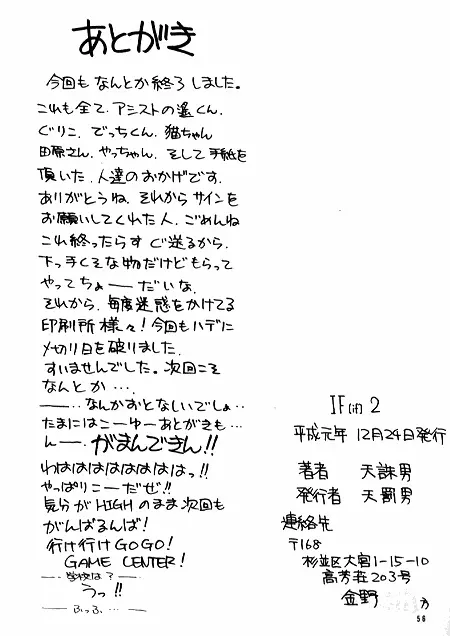 あとがき
今回もなんとか終了しました。
これも全て、アシストの遙くん、
ぐりこ、でっちくん、猫ちゃん
田原さん、やっちゃん、そして手紙を
頂いた、人達のおかげです。
ありがとうね、それからサインを
お願いしてくれた人、ごめんね
これ終ったらすぐ送るから、
下っ手くそな物だけどもらって
やってちょーーだいな、
それから、毎度迷惑をかけてる
印刷所様々！今回もハデに
〆切り日を破りました、
すいませんでした。次回こそ
なんとか…、
――‥なんかおとなしいでしょ‥
たまにはこーゆーあとがきも…
んー、がまんできん!!
わはははははははっ!!
やっぱりこーだぜ!!
気分がHIGHのまま次回も
がんばるんば!
行け行けGOGO!
GAME CENTER!
――学校は？――
うっ!!
――ふっふ…――
IF(if) 2
平成元年 12月24日発行
著者 天誅男
発行者 天罰男
連絡先
〒168
杉並区大宮1-15-10
高芳荘203号
金野 方
56